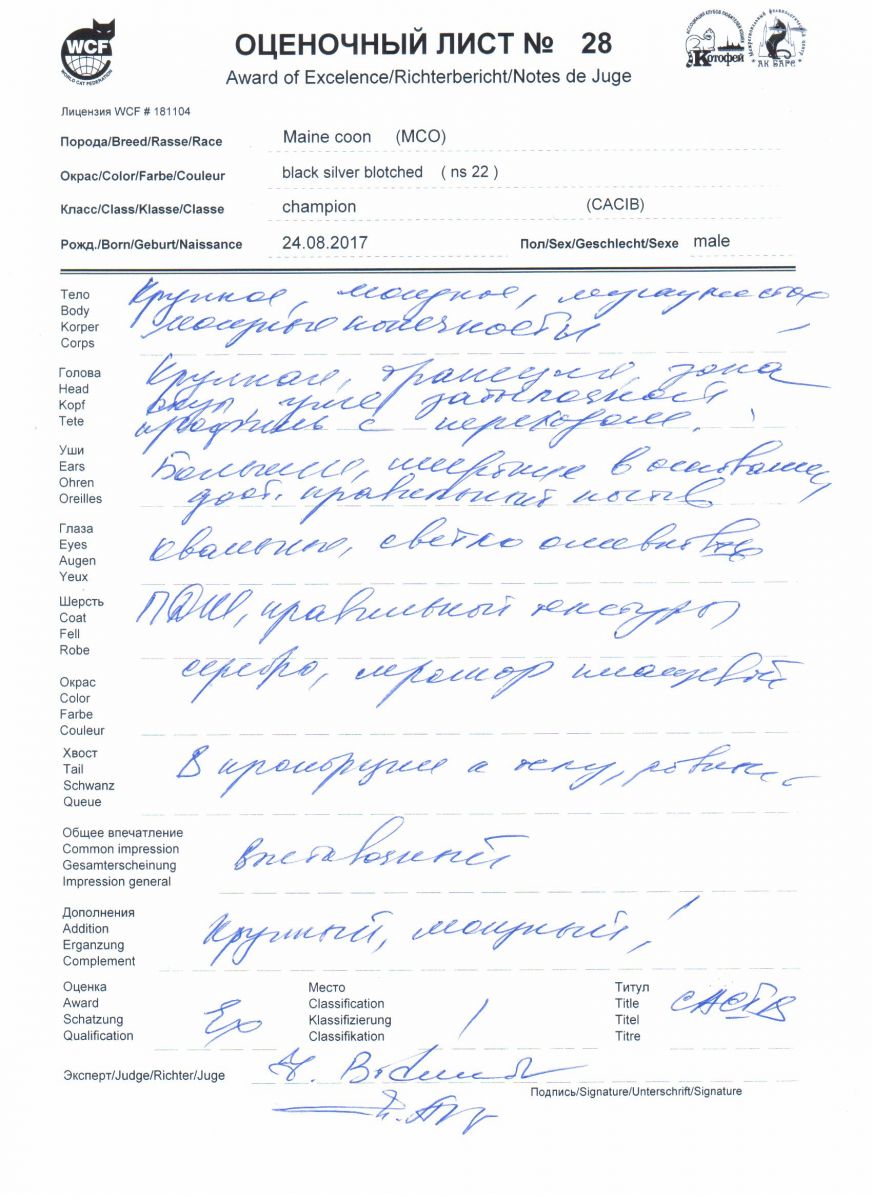 WCF
WORLD CAT FEDERATION
ОЦЕНОЧНЫЙ ЛИСТ № 28
Award of Excelence/Richterbericht/Notes de Juge
Котофей
АК БАРС
Лицензия WCF # 181104
Порода/Breed/Rasse/Race Maine coon (MCO)
Окрас/Color/Farbe/Couleur black silver blotched ( ns 22 )
Класс/Class/Klasse/Classe champion (CACIB)
Рожд./Born/Geburt/Naissance 24.08.2017 Пол/Sex/Geschlecht/Sexe male
Тело
Body
Korper
Corps
Крупное, мощное,
мощные конечности
Голова
Head
Kopf
Tete
Крупная, трапеция, зона
профиль с переходом.
Уши
Ears
Ohren
Oreilles
Большие, широкие в основании,
дост. правильный постав
Глаза
Eyes
Augen
Yeux
Овальные, светло оливковые
Шерсть
Coat
Fell
Robe
ПДШ, правильной текстуры
Окрас
Color
Farbe
Couleur
серебро, мрамор плащевой
Хвост
Tail
Schwanz
Queue
В пропорции к телу,
Общее впечатление
Common impression
Gesamterscheinung
Impression general
Выставочный
Дополнения
Addition
Erganzung
Complement
Крупный, мощный!
Оценка
Award
Schatzung
Qualification
Ex
Место
Classification
Klassifizierung
Classifikation
1
Титул
Title
Titel
Titre
CACIB
Эксперт/Judge/Richter/Juge
Подпись/Signature/Unterschrift/Signature